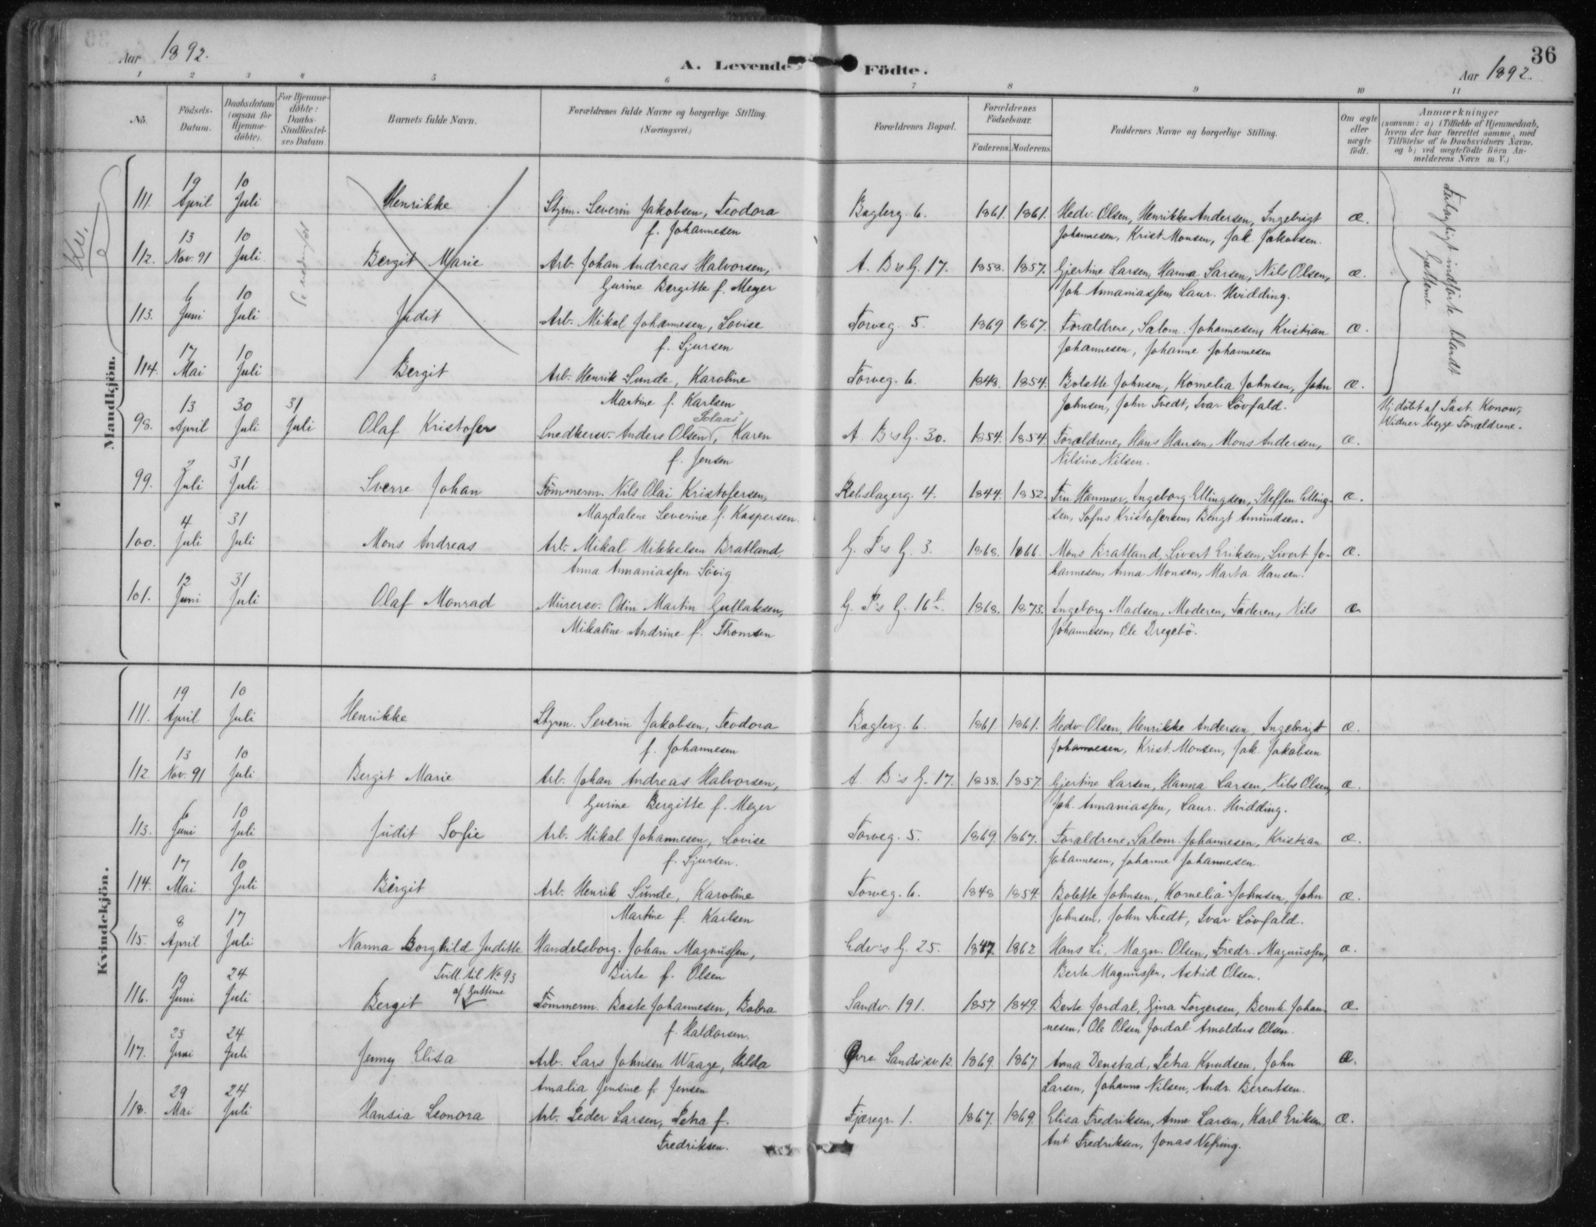 Aar 1892.
A. Levende Fødte.
36
Aar 1892.
1 2 3 4 5 6 7 8 9 10 11
No.
Fødsels-Datum.
Daabsdatum (ogsaa for Hjemme-døbte).
For Hjemme-døbte: Daabs-Stadfæstel-ses Datum
Barnets fulde Navn.
Forældrenes fulde Navne og borgerlige Stilling. (Næringsvei.)
Forældrenes Bopæl.
Forældrenes Fødselsaar.
Faderens. Moderens.
Faddernes Navne og borgerlige Stilling.
Om ægte eller uægte født.
Anmærkninger
(saasom: a) i Tilfælde af Hjemmedaab, hvem der har forrettet samme, med Tilføielse af to Daabsvidners Navne, og b) ved uægtefødte Børn An-melderens Navn m. V.)
Kv.
Mandkjøn.
111. 19 April 10 Juli Henrikke Styrm. Severin Jakobsen, Teodora Baglerg. 6. 1861. 1861. Hedv. Olsen, Henrikke Andersen, Ingebrigt æ.
f. Johannesen Johannesen, Krist. Monsen, Jak. Jakobsen.
112. 13 Nov. 91 10 Juli Bergit Marie Arb. Johan Andreas Halvorsen, A. B's G. 17. 1858. 1857. Gjertine Larsen, Hanna Larsen, Nils Olsen, æ.
Gurine Bergitte f. Meyer Joh. Annaniassen, Laur. Hvidding.
113. 6 Juni 10 Juli Judit Arb. Mikal Johannesen, Lovise Torveg. 5. 1869 1867. Forældrene, Salom. Johannesen, Kristian æ.
f. Sjursen Johannesen, Johanne Johannesen
114. 17 Mai 10 Juli Bergit Arb. Henrik Sunde, Karoline Torveg. 6. 1848. 1854. Bolette Johnsen, Kornelia Johnsen, John æ.
Martine f. Karlsen Johnsen, John Tvedt, Ivar Løvfald.
indførte blandt Guttene
98. 13 April 30 Juli 31 Juli Olaf Kristofer Snedkersv. Anders Olsen, Karen A B's G. 30. 1854. 1854 Forældrene, Hans Hansen, Mons Andersen, æ.
f. Jensen Nilsine Nilsen.
Hj. døbt af Past. Konow, Widner begge Forældrene.
99. 2 Juli 31 Juli Sverre Johan Tømmerm. Nils Olai Kristofersen, Rebslagerg. 4. 1844. 1852. Fru Hammer, Ingeborg Ellingsen, Steffen Elling- æ.
Magdalene Severine f. Kaspersen. sen, Sofus Kristofersen, Bengt Amundsen.
100. 4 Juli 31 Juli Mons Andreas Arb. Mikal Mikkelsen Bratland, G. P's G. 3. 1868. 1866. Mons Bratland, Sivert Eriksen, Sivert Jo- æ.
Anna Annaniassen Søvig hannesen, Anna Monsen, Marta Hansen.
101. 12 Juni 31 Juli Olaf Monrad Murersv. Odin Martin Gullaksen, G. P's G. 16 b. 1868. 1873. Ingeborg Madsen, Moderen, Faderen, Nils æ
Mikaline Andrine f. Thomsen Johannesen, Ole Dregebø.
Kvindekjøn.
111. 19 April 10 Juli Henrikke Styrm. Severin Jakobsen, Teodora Baglerg. 6. 1861. 1861. Hedv. Olsen, Henrikke Andersen, Ingebrigt æ.
f. Johannesen Johannesen, Krist. Monsen, Jak. Jakobsen
112 13 Nov. 91 10 Juli Bergit Marie Arb. Johan Andreas Halvorsen, A B's G. 17. 1858. 1857. Gjertine Larsen, Hanna Larsen, Nils Olsen, æ.
Gurine Bergitte f. Meyer Joh. Annaniassen, Laur. Hvidding.
113. 6 Juni 10 Juli Judit Sofie Arb. Mikal Johannesen, Lovise Torveg. 5. 1869. 1867. Forældrene, Salom. Johannesen, Kristian æ.
f. Sjursen. Johannesen, Johanne Johannesen.
114. 17 Mai 10 Juli Bergit Arb. Henrik Sunde, Karoline Torveg. 6. 1848 1854. Bolette Johnsen, Kornelia Johnsen, John æ.
Martine f. Karlsen Johnsen, John Tvedt, Ivar Løvfald.
115. 8 April 17 Juli Nanna Borghild Juditte Handelsborg. Johan Magnussen, Edv's G. 25. 1847 1862 Hans Li, Magn. Olsen, Fredr. Magnussen, æ.
Birte f. Olsen Berte Magnussen, Astrid Olsen.
116. 19 Juni 24 Juli Bergit Tvill. til No 93 af Guttene Tømmerm. Baste Johannesen, Barbra Sandv. 191. 1857 1849. Berte Jordal, Gina Torgersen, Bernh. Johan- æ.
f. Haldorsen. nesen, Ole Olsen Jordal Arnoldus Olsen.
117. 23 Juni 24 Juli Jenny Elisa Arb. Lars Johnsen Waage, Hilda Øvre Sandvisv. 12. 1869. 1867 Anna Denstad, Petra Knudsen, John æ.
Amalia Jensine f. Jensen Larsen, Johanna Nilsen, Andr. Berentsen.
118. 29 Mai 24 Juli Hansia Leonora Arb. Peder Larsen, Petra f. Fjæregr. 1. 1867. 1869. Elisa Fredriksen, Anne Larsen, Karl Eriksen, æ.
Fredriksen. Ant. Fredriksen, Jonas Vefring.